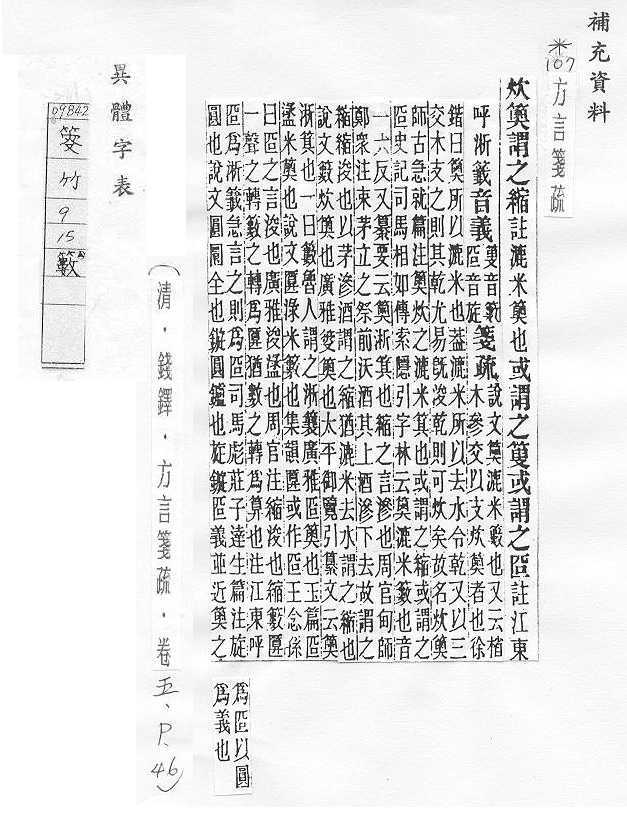 補充資料
*107 方言箋疏
炊䉛謂之縮註漉米䉛也或謂之䉤或謂之㔯註江東
呼淅籤音義
䉤音籔
㔯音旋
箋疏
說文䉛漉米籔也又云㮨
木參交以支炊䉛者也徐
鍇曰䉛所以漉米也葢漉米所以去水令乾又以三
交木支之則其乾尤易旣浚乾則可炊矣故名炊䉛
師古急就篇注䉛炊之漉米箕也或謂之縮或謂之
㔯史記司馬相如傳索隱引字林云䉛漉米籔也音
一六反又纂要云䉛淅箕也縮之言滲也周官甸師
鄭衆注束茅立之祭前沃酒其上酒滲下去故謂之
縮縮浚也以茅滲酒謂之縮猶漉米去水謂之縮也
說文籔炊䉛也廣雅䉤䉛也太平御覽引纂文云䉛
淅箕也一曰籔魯人謂之淅䉤廣雅㔯䉛也玉篇㔯
盝米䉛也說文匴淥米籔也集韻匴或作㔯王念孫
曰㔯之言浚也廣雅浚盝也周官注縮浚也縮籔匴
一聲之轉籔之轉爲匴猶數之轉爲算也注江東呼
㔯爲淅籤急言之則爲㔯司馬彪莊子達生篇注旋
圓也說文圓圜全也鏇圓鑪也旋鏇㔯義並近䉛之
爲㔯以圓
爲義也
（清．錢繹．方言箋疏．卷五、P.46）
異體字表
09842
䈊
竹
9
15
籔